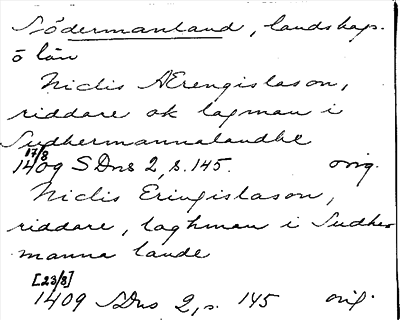 Södermanland, landskap.
o län
Niclis Ærengislason,
riddare ok lagman i
Sudhermannalandhe
17/8
1409 SDns 2, s. 145. orig.
Niclis Eringislason,
riddare, laghman i Sudher
manna lande
[23/8]
1409 SDns 2, s. 145 orig.